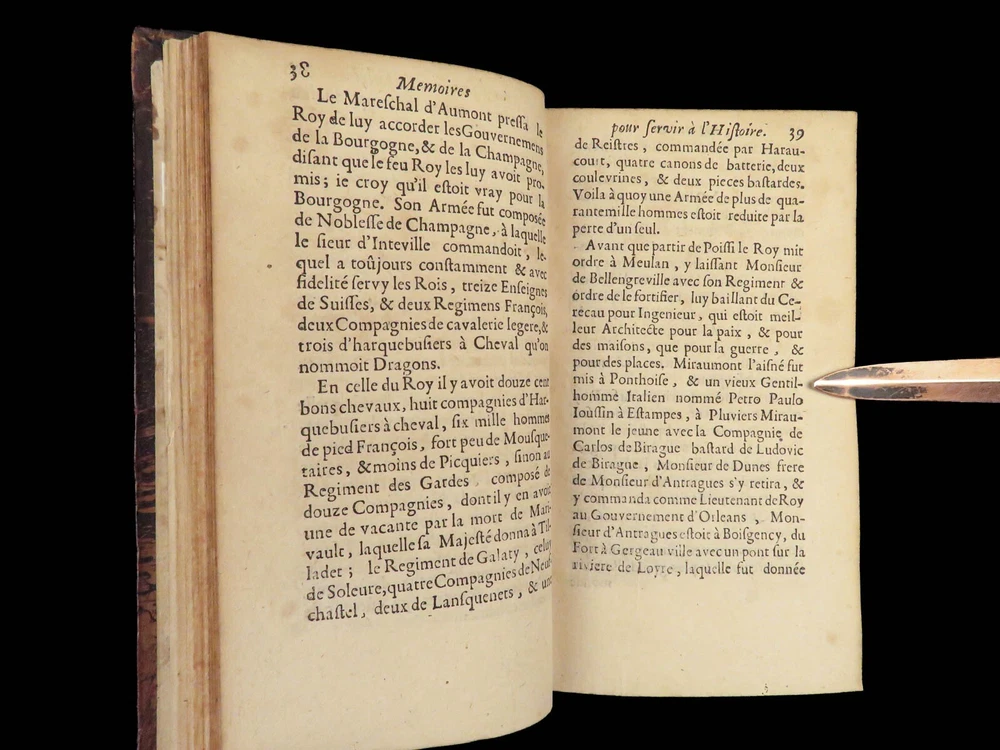 38
Memoires
Le Mareſchal d'Aumont preſſa le
Roy de luy accorder les Gouvernemens
de la Bourgogne, & de la Champagne,
diſant que le feu Roy les luy avoit pro-
mis; ie croy qu'il eſtoit vray pour la
Bourgogne. Son Armée fut composée
de Nobleſſe de Champagne, à laquelle
le ſieur d'Inteville commandoit, le-
quel a toûjours conſtamment & avec
fidelité ſervy les Rois, treize Enſeignes
de Suiſſes, & deux Regimens François,
deux Compagnies de cavalerie legere, &
trois d'harquebuſiers à Cheval qu'on
nommoit Dragons.
En celle du Roy il y avoit douze cent
bons chevaux, huit compagnies d'Har-
quebuſiers à cheval, ſix mille hommes
de pied François, fort peu de Mouſque-
taires, & moins de Picquiers, ſinon au
Regiment des Gardes composé de
douze Compagnies, dont il y en avoit
une de vacante par la mort de Mari-
vault, laquelle ſa Majeſté donna à Til-
ladet; le Regiment de Galaty, celuy
de Soleure, quatre Compagnies de Neuf-
chaſtel, deux de Lanſquenets, & une
pour ſervir à l'Hiſtoire. 39
de Reiſtres, commandée par Harau-
court, quatre canons de batterie, deux
coulevrines, & deux pieces baſtardes.
Voila à quoy une Armée de plus de qua-
rante mille hommes eſtoit reduite par la
perte d'un ſeul.
Avant que partir de Poiſſi le Roy mit
ordre à Meulan, y laiſſant Monſieur
de Bellengreville avec ſon Regiment &
ordre de le fortifier, luy baillant du Ce-
recau pour Ingenieur, qui eſtoit meil-
leur Architecte pour la paix, & pour
des maiſons, que pour la guerre, &
pour des places. Miraumont l'aiſné fut
mis à Ponthoiſe, & un vieux Gentil-
homme Italien nommé Petro Paulo
Iouſſin à Eſtampes, à Pluviers Mirau-
mont le jeune avec la Compagnie de
Carlos de Birague baſtard de Ludovic
de Birague, Monſieur de Dunes frere
de Monſieur d'Antragues s'y retira, &
y commanda comme Lieutenant de Roy
au Gouvernement d'Orleans, Mon-
ſieur d'Antragues eſtoit à Boiſgency, du
Fort à Gergeau ville avec un pont ſur la
riviere de Loyre, laquelle fut donnée